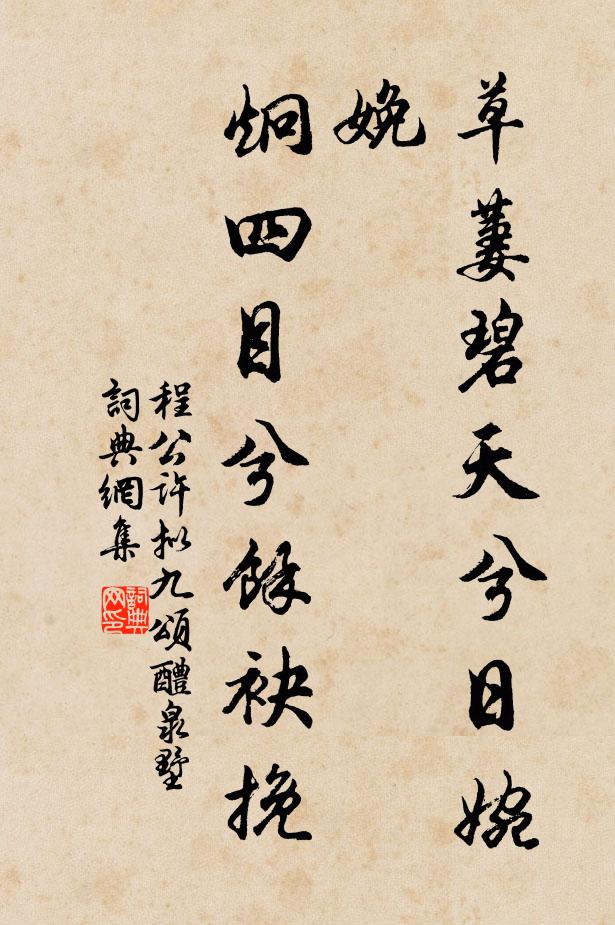 草萋碧天兮日婉
娩
炯四目兮餘袂挽
程公許拟九頌醴泉墅
詞典網集
詞典
网印